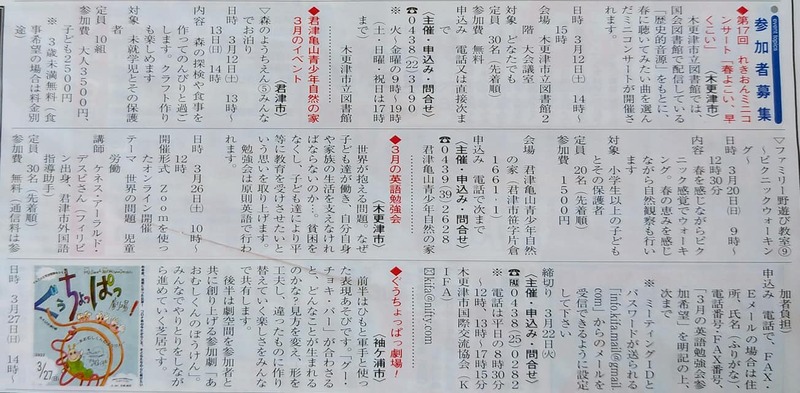 参加者募集
event topics
◆第17回 れきおんミニコ
ンサート「春よこい、早
くこい」
(木更津市)
木更津市立図書館では、
国会図書館で配信している
「歴史的音源」をもとに、
春に聴いてみたい曲を選ん
だミニコンサートが開催さ
れます。
日時 3月12日(土) 14時〜
15時
会場 木更津市立図書館2
階 大会議室
対象 どなたでも
定員 30名(先着順)
参加費 無料
申込み 電話又は直接次ま
で
〈主催・申込み・問合せ〉
☎0438(22)3190
※ 火〜金曜の9時〜19時
(土・日曜・祝日は17時
まで) 木更津市立図書館
◆君津亀山青少年自然の家
3月のイベント
(君津市)
▽森のようちえん⑤みんな
でお泊り
日時 3月12日(土) 13時〜
13日(日) 14時
内容 森の探検や食事を
作ってのんびりと過ご
します。クラフト作り
も楽しめます
対象 未就学児とその保護
者
定員 10組
参加費 大人3500円、
子ども2500円
※ 3歳未満無料(食
事希望の場合は料金別
途)
▽ファミリー野遊び教室⑨
〜ピクニックウォーキン
グ〜
日時 3月20日(日) 9時〜
12時30分
内容 春を感じながらピク
ニック感覚でウォーキ
ング。春の恵みを感じ
ながら自然観察も行い
ます
対象 小学生以上の子ども
とその保護者
定員 20名(先着順)
参加費 1500円
会場 君津亀山青少年自然
の家(君津市笹字片倉
1661‐1)
申込み 電話で次まで
〈主催・申込み・問合せ〉
☎0439(39)2628
君津亀山青少年自然の家
◆3月の英語勉強会
(木更津市)
世界が抱える問題。なぜ
子ども達が働き、自分自身
や家族の生活を支えなけれ
ばならないのか…。貧困を
なくし、子ども達により平
等に教育を受けさせたい。
という思いを取り上げます。
勉強会は原則英語で行わ
れます。
日時 3月26日(土) 10時〜
12時
開催形式 Zoomを使っ
たオンライン開催
テーマ 世界の問題 児童
労働
講師 ケネス・アーラルド・
デスピさん(フィリピ
ン出身、君津市外国語
指導助手)
定員 30名(先着順)
参加費 無料(通信料は参
加者負担)
申込み 電話で、FAX・
Eメールの場合は住
所、氏名(ふりがな)、
電話番号・FAX番号、
「3月の英語勉強会参
加希望」を明記の上、
次まで
※ ミーティングIDと
パスワードが送られる
「info.kifa.mail@gmail.
com」からのメールを
受信できるように設定
して下さい
締切り 3月22日(火)
〈主催・申込み・問合せ〉
☎FAX0438(25)0282
※ 電話は平日の8時30分
〜12時、13時〜17時15分
木更津市国際交流協会(K
IFA)
✉kifa@nifty.com
◆ぐうちょっぱっ劇場!
(袖ケ浦市)
前半はひもと軍手と使っ
た表現あそびです。「グー・
チョキ・パー」が合わさる
と、どんなことが生まれる
のかな?見方を変え、形を
工夫し、違ったものに作り
替えていく楽しさをみんな
で共有します。
後半は劇空間を参加者と
共に創り上げる参加劇「あ
おむしくんのぼうけん」。
みんなでやりとりをしなが
ら進めていく芝居です。
ぐうちょっぱっ
劇場!
2022
3/27
日時 3月27日(日) 14時〜